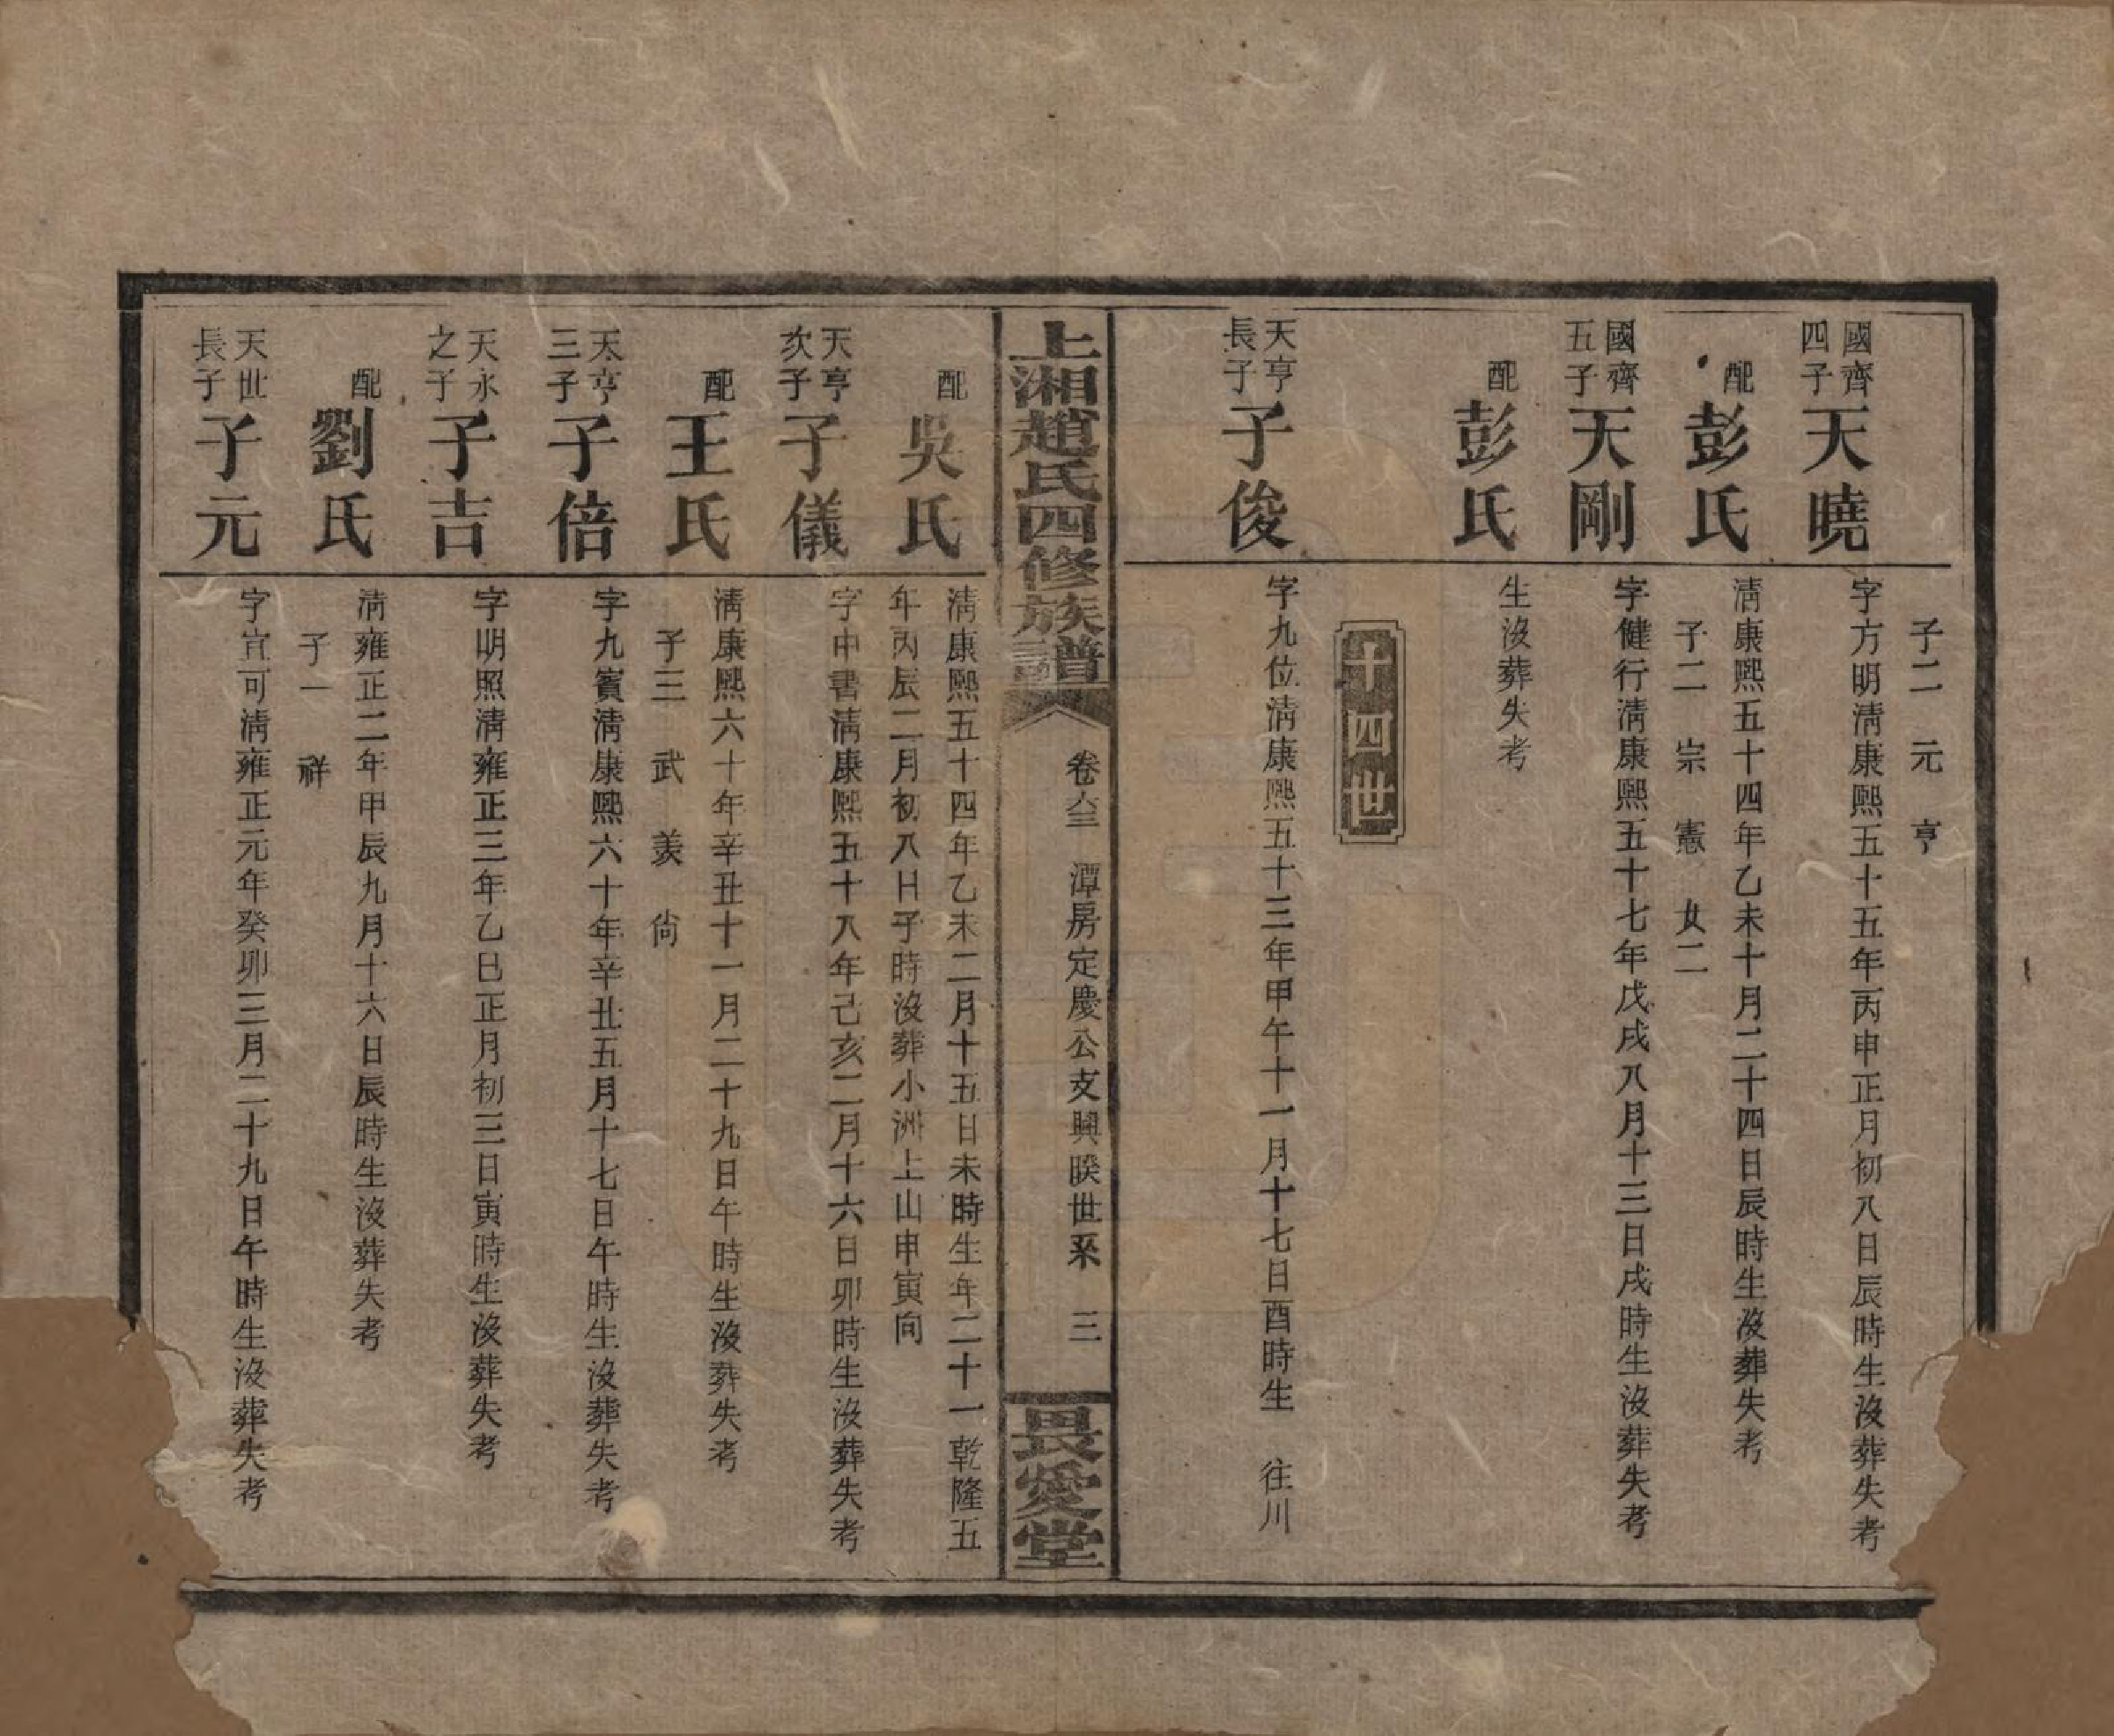 子二　元　亨
國齊四子　天曉　字方明淸康熙五十五年丙申正月初八日辰時生沒葬失考
配　彭氏　淸康熙五十四年乙未十月二十四日辰時生沒葬失考
子二　宗　憲　女二
國齊五子　天剛　字健行淸康熙五十七年戊戌八月十三日戌時生沒葬失考
配　彭氏　生沒葬失考
十四世
天亨長子　子俊　字九位淸康熙五十三年甲午十一月十七日酉時生　往川
上湘趙氏四修族譜　卷六三　潭房定慶公支興睽世系　三　畏愛堂
配　吳氏　淸康熙五十四年乙未二月十五日未時生年二十一乾隆五
年丙辰二月初八日子時沒葬小洲上山申寅向
天亨次子　子儀　字中書淸康熙五十八年己亥二月十六日卯時生沒葬失考
配　王氏　淸康熙六十年辛丑十一月二十九日午時生沒葬失考
子三　武　羨　尙
天亨三子　子倍　字九賓淸康熙六十年辛丑五月十七日午時生沒葬失考
天永之子　子吉　字明照淸雍正三年乙巳正月初三日寅時生沒葬失考
配　劉氏　淸雍正二年甲辰九月十六日辰時生沒葬失考
子一　祥
天世長子　子元　字宜可淸雍正元年癸卯三月二十九日午時生沒葬失考